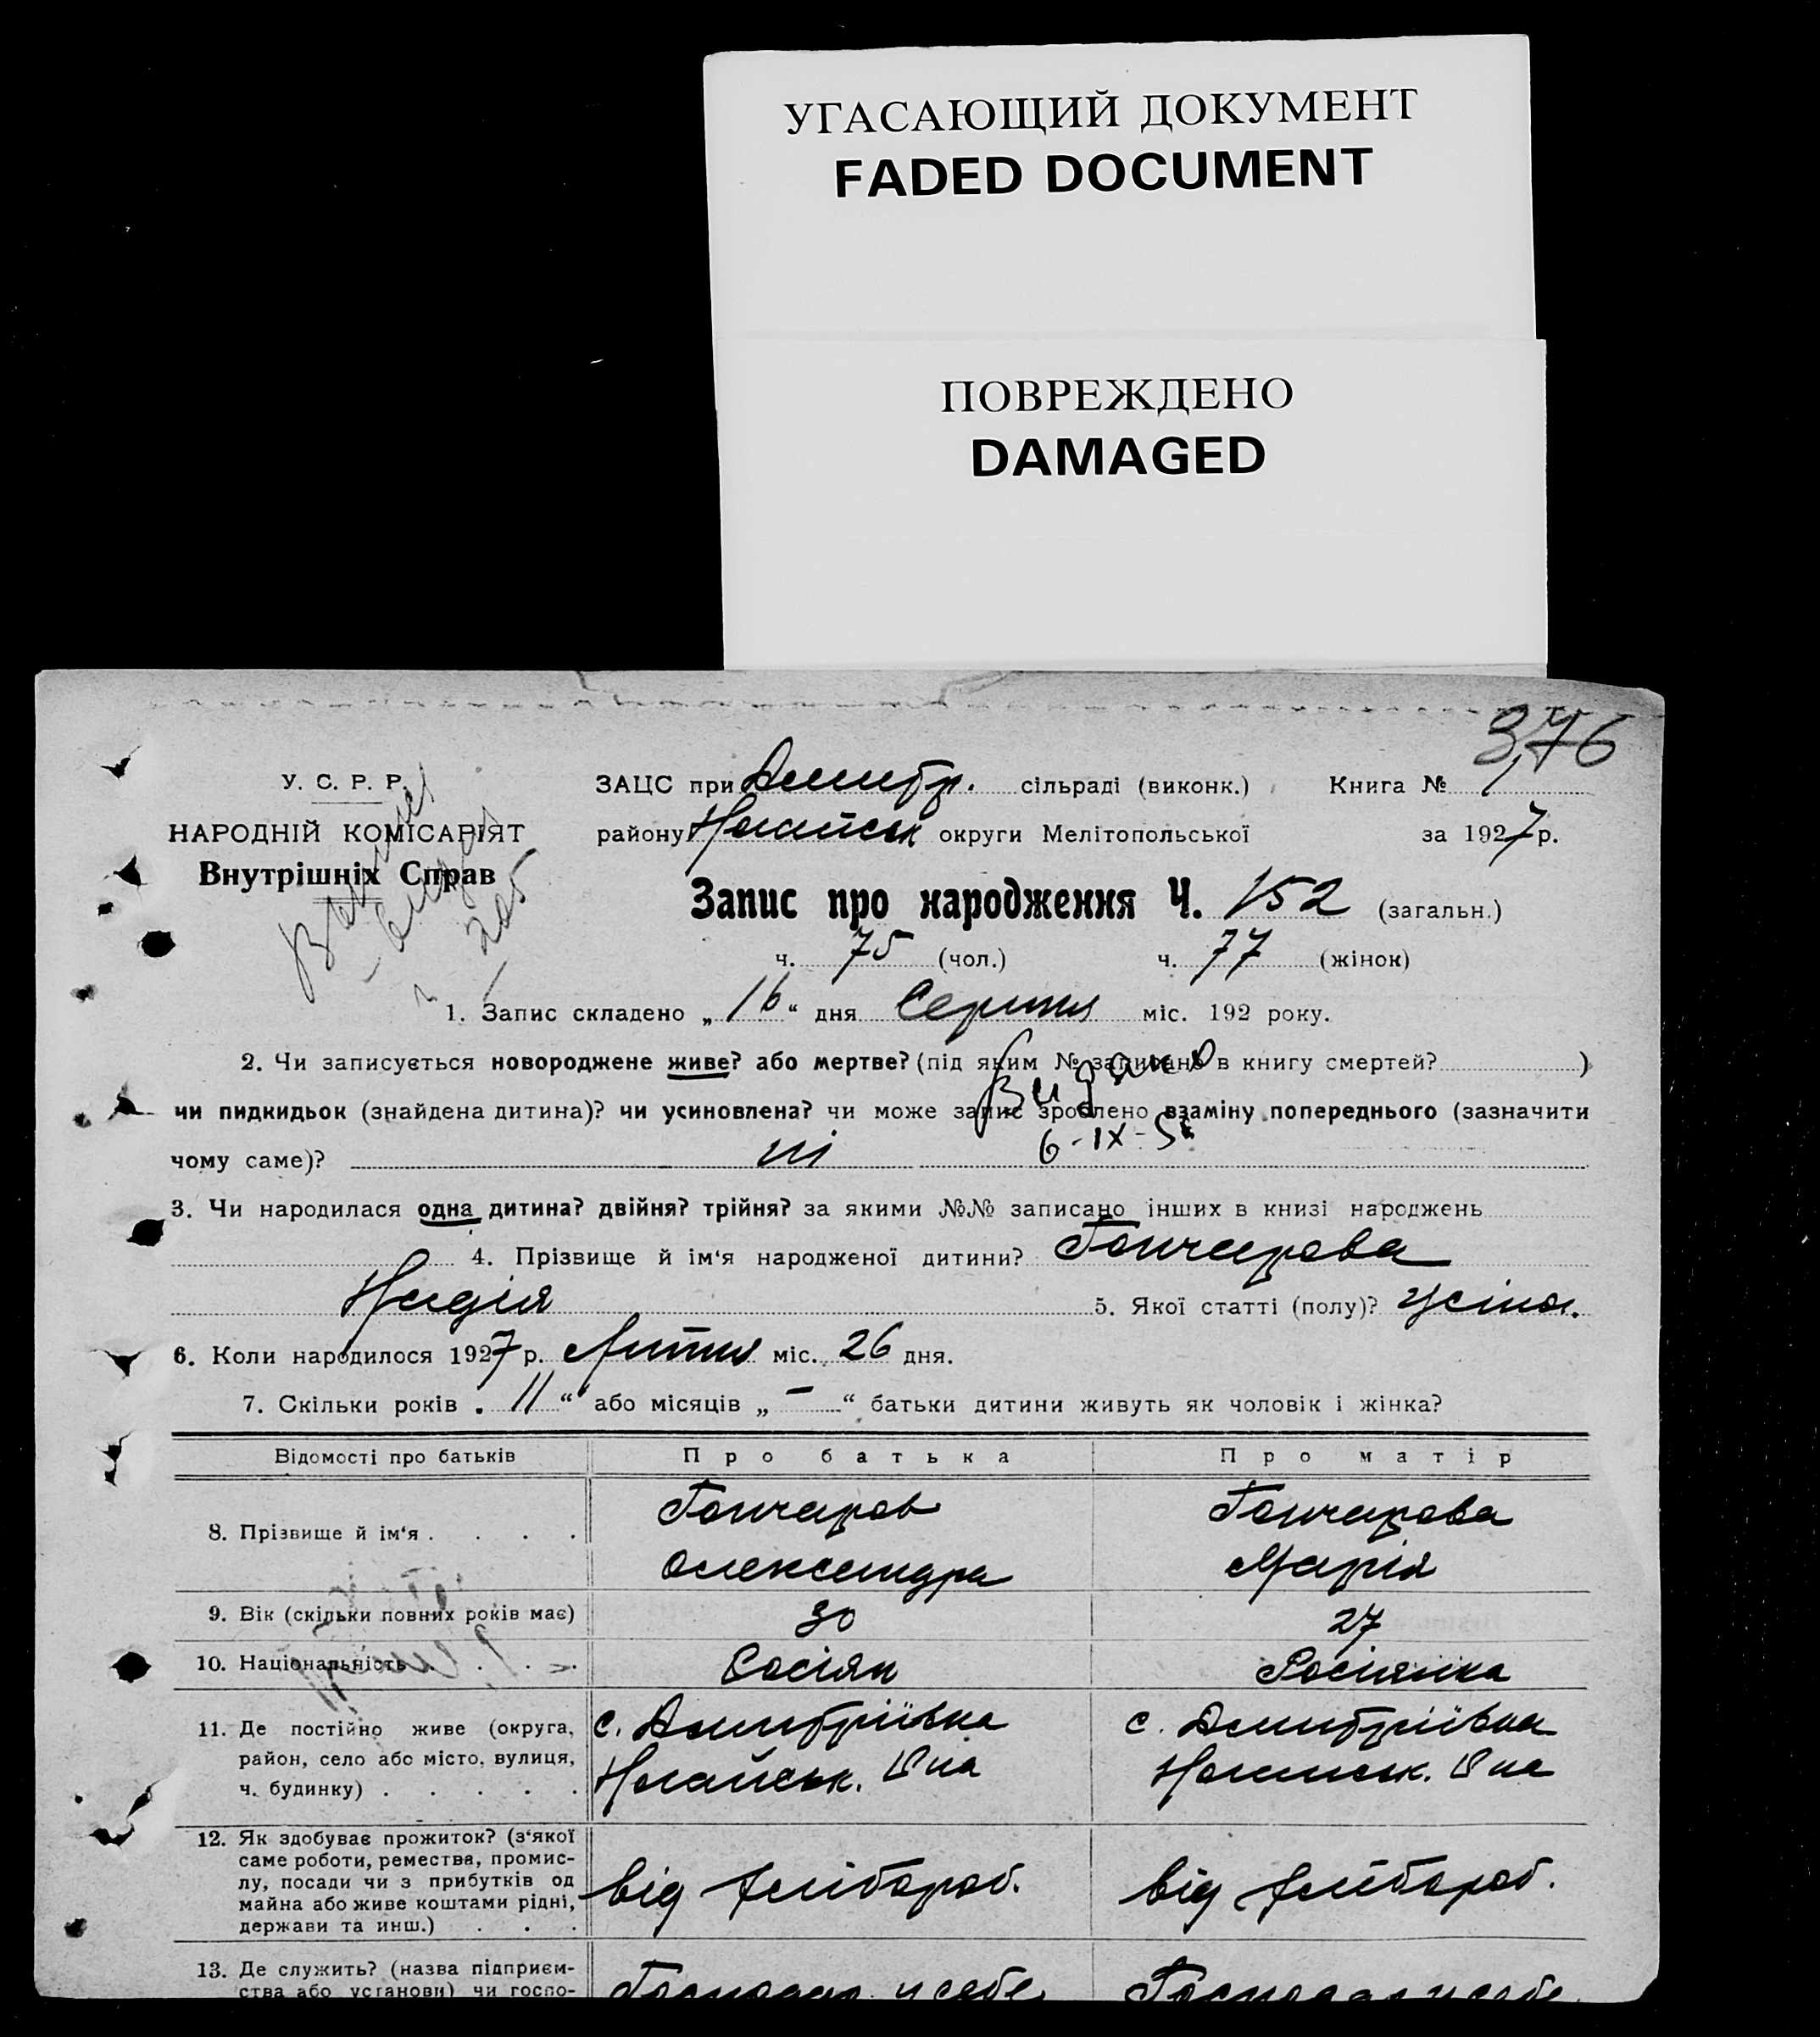 УГАСАЮЩИЙ ДОКУМЕНТ
FADED DOCUMENT
ПОВРЕЖДЕНО
DAMAGED
376
У. С. Р. Р.
НАРОДНІЙ КОМІСАРІЯТ
Внутрішніх Справ
ЗАЦС при Дмитр. сільраді (виконк.) Книга № 1
району Ногайськ округи Мелітопольської за 1927 р.
Запис про народження Ч. 152 (загальн.)
ч. 75 (чол.) ч. 77 (жінок)
1. Запис складено „16“ дня Серпня міс. 192 року.
2. Чи записується новороджене живе? або мертве? (під яким № записано в книгу смертей? )
Видано
чи пидкидьок (знайдена дитина)? чи усиновлена? чи може запис зроблено взаміну попереднього (зазначити
6-IX-5
чому саме)? ні
3. Чи народилася одна дитина? двійня? трійня? за якими №№ записано інших в книзі народжень
4. Прізвище й ім'я народженої дитини? Гончарова
Надія 5. Якої статті (полу)? жіноч.
6. Коли народилося 1927 р. Липня міс. 26 дня.
7. Скільки років „ 11 “ або місяців „ — “ батьки дитини живуть як чоловік і жінка?
Відомості про батьків Про батька Про матір
8. Прізвище й ім'я . . . . Гончаров Гончарова
Олександра Марія
9. Вік (скільки повних років має) 30 27
10. Національність . . . . Росіян Росіянка
11. Де постійно живе (округа, с. Дмитріївка с. Дмитріївка
район, село або місто, вулиця, Ногайськ. Р на Ногайськ. Р на
ч. будинку) . . . . .
12. Як здобуває прожиток? (з'якої
саме роботи, ремества, промис-
лу, посади чи з прибутків од
майна або живе коштами рідні, від хлібороб. від хлібороб.
держави та инш.) . . .
13. Де служить? (назва підприєм- Господар. у себе Господар у себе
ства або установи) чи госпо-